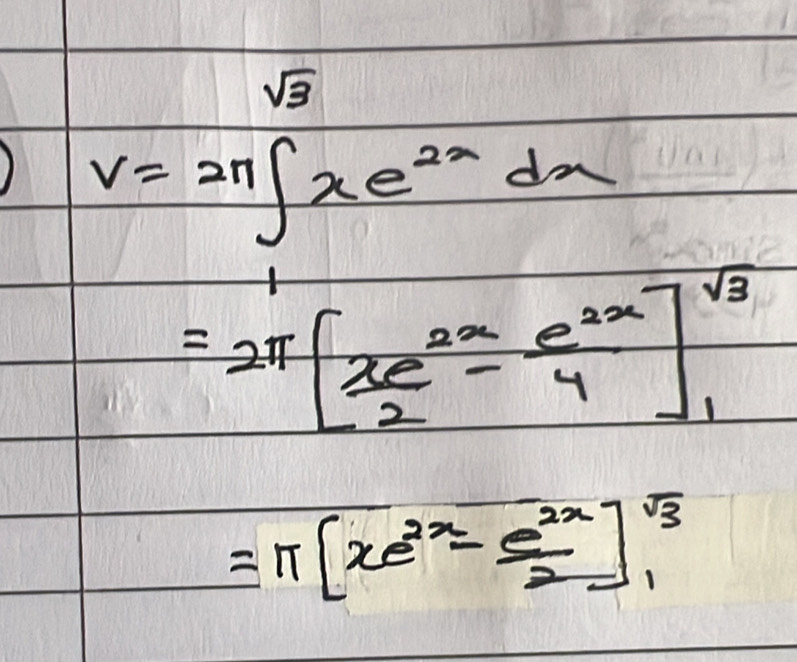 ) V = 2π ∫₁^√3 x e^{2x} dx
= 2π [xe^{2x}/2 − e^{2x}/4]₁^√3
= π [xe^{2x} − e^{2x}/2]₁^√3